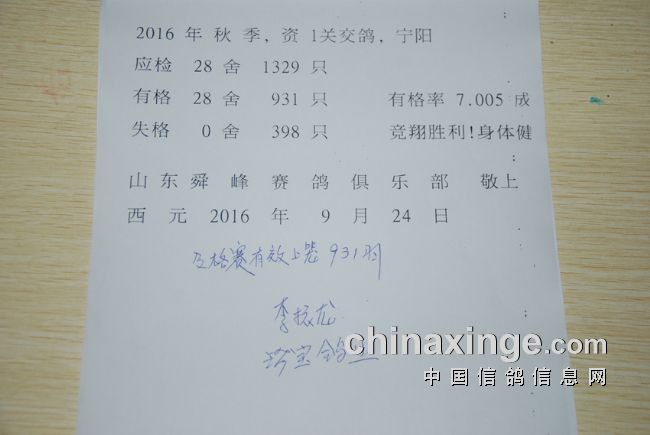 2016 年 秋 季, 资 1关交鸽, 宁阳
应检 28 舍 1329 只
有格 28 舍 931 只 有格率 7.005 成
失格 0 舍 398 只 竞翔胜利!身体健
山 东 舜 峰 赛 鸽 俱 乐 部 敬上
西 元 2016 年 9 月 24 日
及格赛有效上笼 931羽
李振龙
chinaxinge.com
中国信鸽信息网